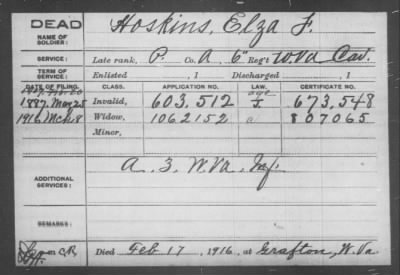 DEAD
NAME OF SOLDIER: Hoskins, Elza F.
SERVICE: Late rank, P. Co. A, 6" Reg't W.Va Cav.
TERM OF SERVICE: Enlisted , 1 Discharged , 1
DATE OF FILING. CLASS. APPLICATION NO. LAW. CERTIFICATE NO.
1887. May 25 Invalid, 603.512 673,548
1916 Mch 8 Widow, 1062152 807065
Minor,
ADDITIONAL SERVICES: A. 3. W.Va. Inf.
REMARKS:
Died Feb 17, 1916, at Grafton, W.Va.